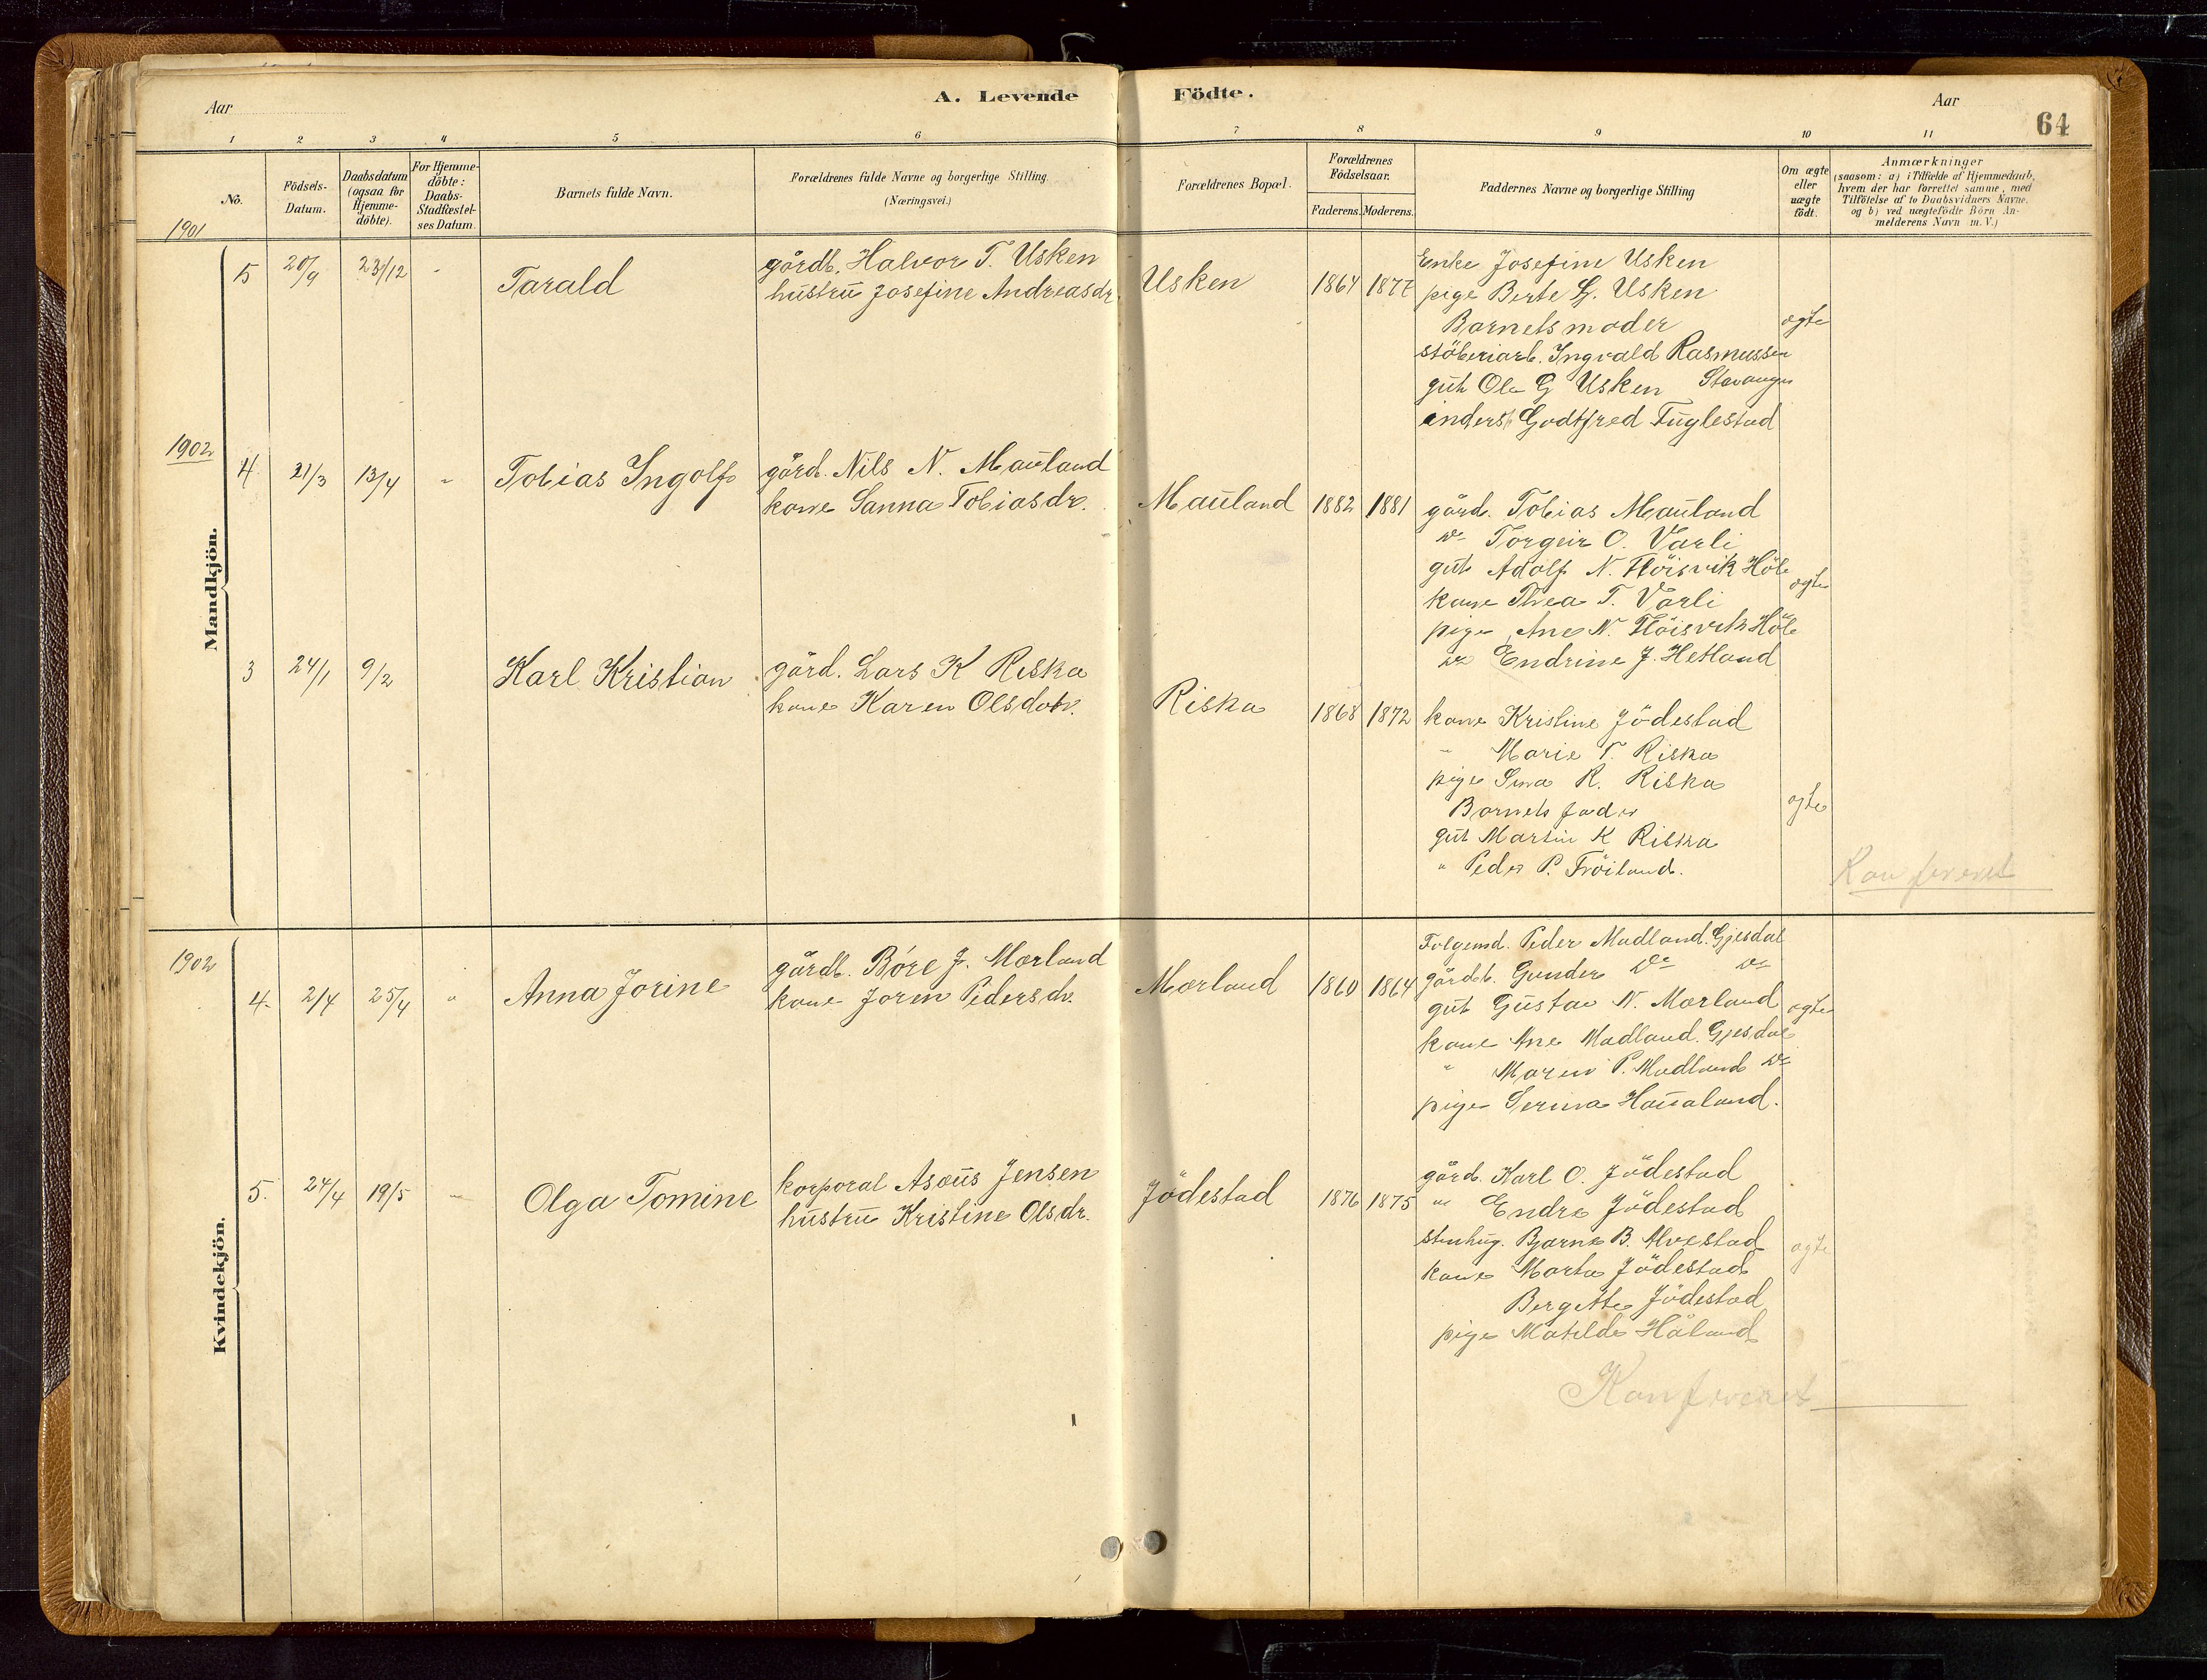 A. Levende Födte.
Aar
Aar
64
1 2 3 4 5 6 7 8 9 10 11
No.
Födsels-Datum.
Daabsdatum (ogsaa for Hjemme-döbte).
For Hjemme-döbte: Daabs-Stadfæstel-ses Datum.
Barnets fulde Navn.
Forældrenes fulde Navne og borgerlige Stilling. (Næringsvei.)
Forældrenes Bopæl.
Forældrenes Födselsaar.
Faderens. Moderens.
Faddernes Navne og borgerlige Stilling
Om ægte eller uægte födt.
Anmærkninger
(saasom: a) i Tilfælde af Hjemmedaab,
hvem der har forrettet samme, med
Tilföielse af to Daabsvidners Navne.
og b) ved uægtefödte Börn An-
melderens Navn m. V.)
Mandkjön.
1901
5 20/9 23/12 - Tarald
gårdb. Halvor T. Usken
hustru Josefine Andreasdr
Usken 1864 1877
Enke Josefine Usken
pige Berte G. Usken
Barnets moder
støberiarb. Ingvald Rasmussen
gut Ole G Usken Stavanger
anders Godtfred Fuglestad
ægte
1902
4 21/3 13/4 - Tobias Ingolf
gård. Nils N. Mauland
kone Sanna Tobiasdr.
Mauland 1882 1881
gård. Tobias Mauland
do Torgeir O. Varli
gut Adolf N. Fløisvik Høle
kone Thea T. Varli
pige Ane N. Fløisvik Høle
do Endrine J. Hetland
ægte
3 24/1 9/2 Karl Kristian
gård. Lars K Riska
kone Karen Olsdatr.
Riska 1868 1872
kone Kristine Jödestad
" Marie T. Riska
pige Sina R. Riska
Barnets fader
gut Martin K Riska
" Peder P. Fröiland.
ægte
Konfereret
Kvindekjön.
1902
4. 2/4 25/4 " Anna Jorine
gårdb. Böre J. Mærland
kone Jorin Pedersdr.
Mærland 1860 1864
Folgemd. Peder Madland. Gjesdal
gårdb. Gunder do do
gut Gustav N. Mærland
kone Ane Madland. Gjesdal
" Maren P. Madland do
pige Serina Haualand.
ægte
5. 24/4 19/5 - Olga Tomine
korporal Asæus Jensen
hustru Kristine Olsdr.
Jödestad 1876 1875
gård. Karl O. Jödestad
" Endre Jödestad
stenhug. Bjarne B. Alvestad
kone Marta Jödestad
Bergitte Jödestad
pige Matilde Håland
ægte
Konfereret